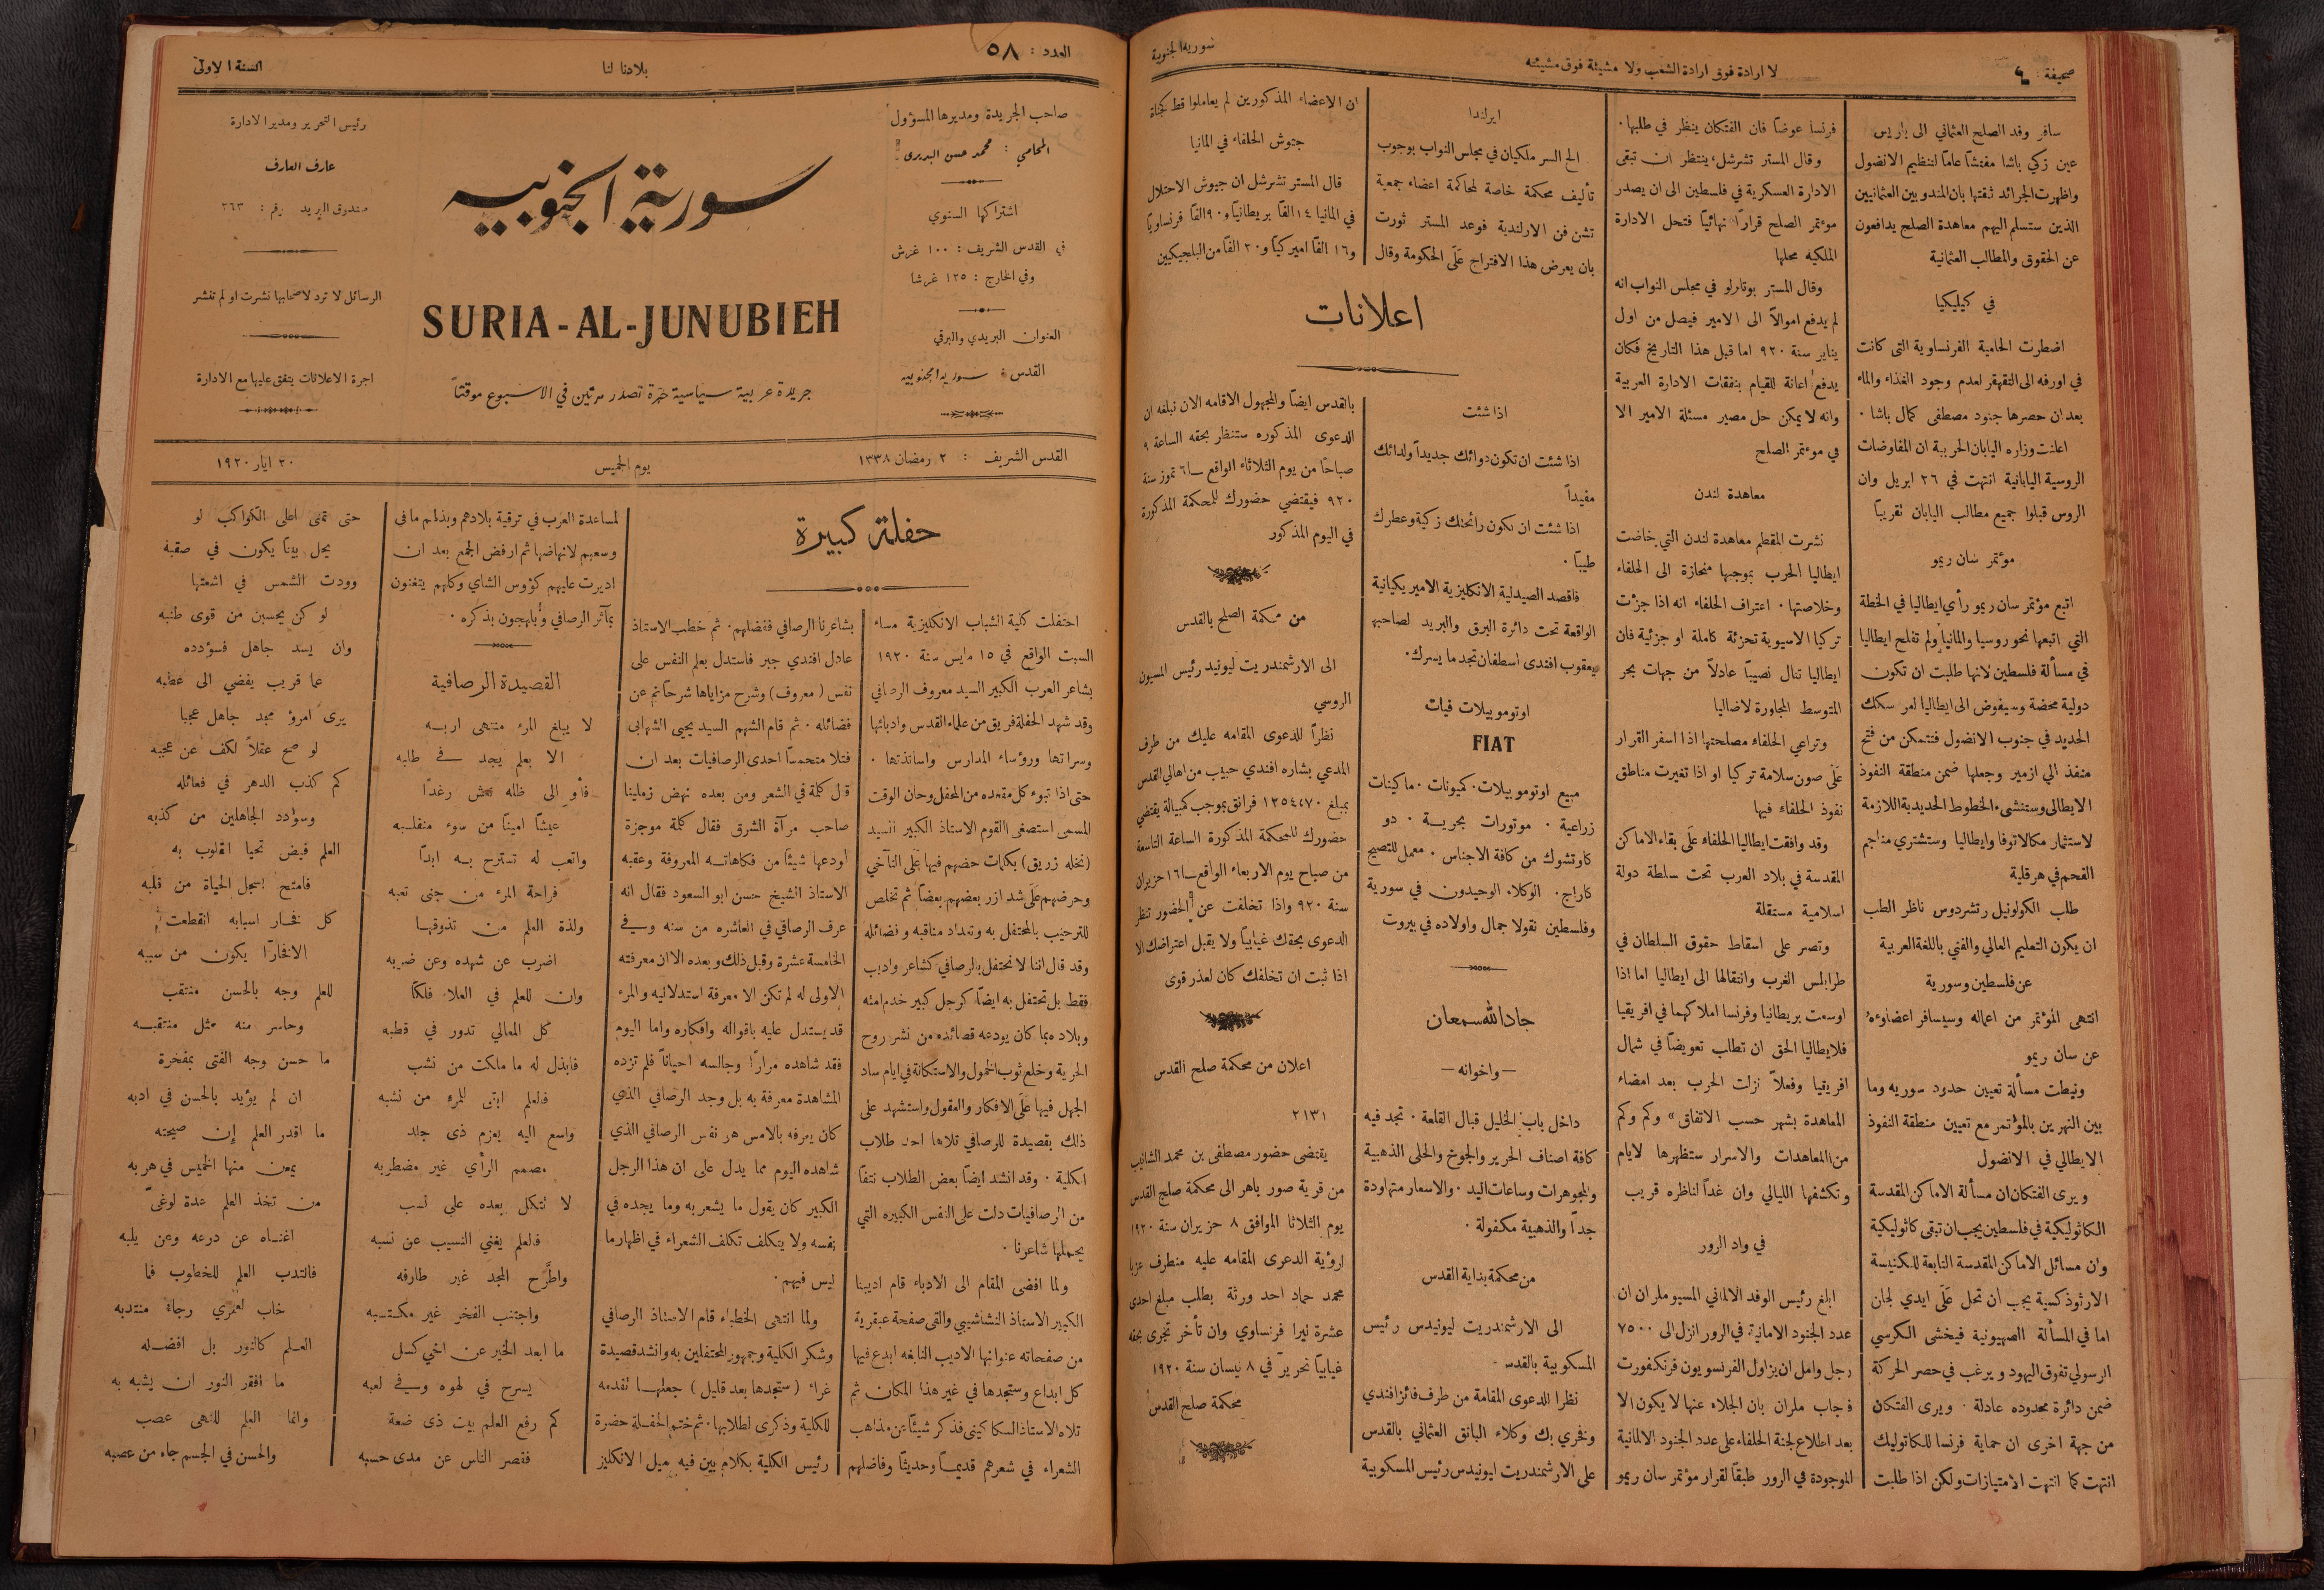 صحيفة : ٤
لا ارادة فوق ارادة الشعب ولا مشيئة فوق مشيئته
سورية الجنوبية
سافر وفد الصلح العثماني الى باريس
عين زكي باشا مفتشاً عاماً لتنظيم الانضول
واظهرت الجرائد ثقتها بان المندوبين العثمانيين
الذين ستسلم اليهم معاهدة الصلح يدافعون
عن الحقوق والمطالب العثمانية
في كيليكيا
اضطرت الحامية الفرنساوية التى كانت
في اورفه الى التقهقر لعدم وجود الغذاء والماء
بعد ان حصرها جنود مصطفى كمال باشا ٠
اعلنت وزاره اليابان الحربية ان المفاوضات
الروسية اليابانية انتهت في ٢٦ ابريل وان
الروس قبلوا جميع مطالب اليابان تقريباً
مؤتمر سان ريمو
اتبع مؤتمر سان ريمو رأي ايطاليا في الخطة
التي اتبعها نحو روسيا والمانيا ولم تفلح ايطاليا
في مسألة فلسطين لانها طلبت ان تكون
دولية محضة وسيفوض الى ايطاليا امر سكك
الحديد في جنوب الانضول فتتمكن من فتح
منفذ الي ازمير وجعلها ضمن منطقة النفوذ
الايطالى وستنشىء الخطوط الحديدية اللازمة
لاستثمار مكالاتوفا وايطاليا وستشتري مناجم
الفحم في هرقلية
طلب الكولونيل رتشردوس ناظر الطب
ان يكون التعليم العالي والفني باللغة العربية
عن فلسطين وسورية
انتهى المؤتمر من اعماله وسيسافر اعضاوءه
عن سان ريمو
ونيطت مسألة تعيين حدود سوريه وما
بين النهرين بالمؤتمر مع تعيين منطقة النفوذ
الايطالي في الانضول
ويرى الفتكان ان مسألة الاماكن المقدسة
الكاثوليكية في فلسطين يجب ان تبقى كاثوليكية
وان مسائل الاماكن المقدسة التابعة للكنيسة
الارثوذكسية يجب أن تحل على ايدي لجان
اما في المسألة الصهيونية فيخشى الكرسي
الرسولي تفوق اليهود ويرغب في حصر الحركة
ضمن دائرة محدوده عادلة ٠ ويرى الفتكان
من جهة اخرى ان حماية فرنسا للكاثوليك
انتهت كما انتهت الامتيازات ولكن اذا طلبت
فرنسا عوضاً فان الفتكان ينظر في طلبها ٠
وقال المستر تشرشل، ينتظر ان تبقى
الادارة العسكرية في فلسطين الى ان يصدر
موءتمر الصلح قراراً نهائياً فتحل الادارة
الملكيه محلها
وقال المستر بوتارلو في مجلس النواب انه
لم يدفع اموالاً الى الامير فيصل من اول
يناير سنة ٩٢٠ اما قبل هذا التاريخ فكان
يدفع اعانة للقيام بنفقات الادارة العربية
وانه لا يمكن حل مصير مسئلة الامير الا
في موءتمر الصلح
معاهدة لندن
نشرت المقطم معاهدة لندن التي خاضت
ايطاليا الحرب بموجبها منحازة الى الحلفاء
وخلاصتها ٠ اعتراف الحلفاء انه اذا جزئت
تركيا الاسيوية تجزئة كاملة او جزئية فان
ايطاليا تنال نصيباً عادلاً من جهات بحر
المتوسط المجاورة لاضاليا
وتراعي الحلفاء مصلحتها اذا اسفر القرار
عَلَى صون سلامة تركيا او اذا تغيرت مناطق
نفوذ الحلفاء فيها
وقد وافقت ايطاليا الحلفاء عَلَى بقاء الاماكن
المقدسة في بلاد العرب تحت سلطة دولة
اسلامية مستقلة
وتصر على اسقاط حقوق السلطان في
طرابلس الغرب وانتقالها الى ايطاليا اما اذا
اوسعت بريطانيا وفرنسا املاكهما في افريقيا
فلايطاليا الحق ان تطلب تعويضاً في شمال
افريقيا وفعلاً نزلت الحرب بعد امضاء
المعاهدة بشهر حسب الاتفاق » وكم وكم
من المعاهدات والاسرار ستظهرها لايام
وتكشفها الليالي وان غداً لناظره قريب
في واد الرور
ابلغ رئيس الوفد الالماني المسيو ملران ان
عدد الجنود الامانية في الرور انزل الى ٧٥٠٠
رجل وامل ان يزاول الفرنسويون فرنكفورت
فاجاب ملران بان الجلاء عنها لا يكون الا
بعد اطلاع لجنة الحلفاء على عدد الجنود الالمانية
الموجودة في الرور طبقاً لقرار مؤتمر سان ريمو
ايرلندا
الح السر ملكيان في مجلس النواب بوجوب
تأليف محكمة خاصة لمحاكمة اعضاء جمعية
تشن فن الارلندية فوعد المستر ثورت
بان يعرض هذا الاقتراح عَلَى الحكومة وقال
ان الاعضاء المذكورين لم يعاملوا قط كجناة
جنوش الحلفاء في المانيا
قال المستر تشرشل ان جيوش الاحتلال
في المانيا ١٤ الفاً بريطانياً و٩٠ الفاً فرنساوياً
و١٦ الفاً اميركياً و٢٠ الفاً من البلجيكيين
اعلانات
اذا شئت
اذا شئت ان تكون دوائك جديداً ولدائك
مفيداً
اذا شئت ان تكون رائحتك زكية وعطرك
طيباً ٠
فاقصد الصيدلية الانكليزية الاميريكيانية
الواقعة تحت دائرة البرق والبريد لصاحبها
يعقوب افندى اسطفان تجد ما يسرك ٠
اوتوموبيلات فيات
FIAT
مبيع اوتوموبيلات ٠ كميونات ٠ ماكينات
زراعية ٠ موتورات بحرية ٠ دو
كاوتشوك من كافة الاجناس ٠ معمل للتصيح
كاراج ٠ الوكلاء الوحيدون في سورية
وفلسطين نقولا جمال واولاده في بيروت
جاد الله سمعان
— واخوانه —
داخل باب الخليل قبال القلعة ٠ تجد فيه
كافة اصناف الحرير والجوخ والحلى الذهبية
والمجوهرات وساعات اليد ٠ والاسعار متهاودة
جداً والذهبية مكفولة ٠
من محكمة بداية القدس
الى الارشمندريت ليونيدس رئيس
المسكوبية بالقدس
نظرا للدعوى المقامة من طرف فائز افندي
وفخري بك وكلاء البانق العثماني بالقدس
على الارشمندريت ليونيدس رئيس المسكوبية
بالقدس ايضاً والمجهول الاقامه الان نبلغه ان
الدعوى المذكوره ستنظر بحقه الساعة ٩
صباحاً من يوم الثلاثاء الواقع ٦ تموز سنة
٩٢٠ فيقتضي حضورك للمحكمة المذكورة
في اليوم المذكور
من محكمة الصلح بالقدس
الى الارشمندريت ليونيد رئيس المسيون
الروسي
نظراً للدعوى المقامه عليك من طرف
المدعي بشاره افندي حبيب من اهالي القدس
بمبلغ ١٢٥٤،٧٠ فرانق بموجب كمبيالة يقتضي
حضورك للمحكمة المذكورة الساعة التاسعة
من صباح يوم الاربعاء الواقع ١٦ حزيران
سنة ٩٢٠ واذا تخلفت عن الحضور تنظر
الدعوى بحقك غيابياً ولا يقبل اعتراضك الا
اذا ثبت ان تخلفك كان لعذر قوى
اعلان من محكمة صلح القدس
٢١٣١
يقتضى حضور مصطفى بن محمد الشايب
من قرية صور باهر الى محكمة صلح القدس
يوم الثلاثا الموافق ٨ حزيران سنة ١٩٢٠
لرؤية الدعرى المقامه عليه منطرف عزبا
محمد حماد احد ورثة بطلب مبلغ احدى
عشرة ليرا فرنساوي وان تأخر تجرى بحقه
غيابياً تحريرً في ٨ نيسان سنة ١٩٢٠
محكمة صلح القدس
العدد : ٥٨
بلادنا لنا
السنة الاولى
صاحب الجريدة ومديرها المسؤول
المحامي : محمد حسن البديرى
اشتراكها السنوي
في القدس الشريف : ١٠٠ غرش
وفي الخارج : ١٢٥ غرشا
العنوان البريدي والبرقي
القدس : سورية الجنوبيه
سورية الجنوبيه
SURIA-AL-JUNUBIEH
جريدة عربية سياسية حرة تصدر مرتين في الاسبوع موقتاً
رئيس التحرير ومدير الادارة
عارف العارف
صندوق البريد رقم : ٢٦٣
الرسائل لا ترد لاصحابها نشرت او لم تنشر
اجرة الاعلانات يتفق عليها مع الادارة
القدس الشريف : ٢ رمضان ١٣٣٨
يوم الخميس
٢٠ ايار ١٩٢٠
حفلة كبيرة
احتفلت كلية الشباب الانكليزية مساء
السبت الواقع في ١٥ مايس سنة ١٩٢٠
بشاعر العرب الكبير السيد معروف الرصافي
وقد شهد الحفلة فريق من علماء القدس وادبائها
وسراتها ورؤساء المدارس واساتذتها ٠
حتى اذا تبوء كل مقعده من المحفل وحان الوقت
المسمى استصغى القوم الاستاذ الكبير السيد
(نخله زريق) بكلمات حضهم فيها عَلَى التآخي
وحرضهم عَلَى شد ازر بعضهم بعضاً ثم تخلص
للترحيب بالمحتفل به وتعداد مناقبه وفضائله
وقد قال اننا لا نحتفل بالرصافي كشاعر واديب
فقط بل تحتفل به ايضاً كرجل كبير خدم امته
وبلاده بما كان يودعه قصائده من نشر روح
الحرية وخلع ثوب الخمول والاستكانة في ايام ساد
الجهل فيها عَلَى الافكار والعقول واستشهد على
ذلك بقصيدة للرصافي تلاها احد طلاب
الكلية ٠ وقد انشد ايضاً بعض الطلاب نتفاً
من الرصافيات دلت على النفس الكبيره التي
يحملها شاعرنا ٠
ولما افضى المقام الى الادباء قام اديبنا
الكبير الاستاذ النشاشيبي والقى صفحة عبقرية
من صفحاته عنوانها الاديب النابغه ابدع فيها
كل ابداع وستجدها في غير هذا المكان ثم
تلاه الاستاذ السكاكينى فذكر شيئاً عن مذاهب
الشعراء في شعرهم قديماً وحديثاً وفاضلهم
بشاعرنا الرصافي ففضلهم ٠ ثم خطب الاستاذ
عادل افندي جبر فاستدل بعلم النفس على
نفس ( معروف ) وشرح مزاياها شرحاً نم عن
فضائله ٠ ثم قام الشهم السيد يحيى الشهابي
فتلا متحمساً احدى الرصافيات بعد ان
قال كلمة في الشعر ومن بعده نهض زميلنا
صاحب مرآة الشرق فقال كلمة موجزة
أودعها شيئاً من فكاهاته المعروفة وعقبه
الاستاذ الشيخ حسن ابو السعود فقال انه
عرف الرصافي في العاشره من سنه وفي
الخامسة عشرة وقبل ذلك وبعده الا ان معرفته
الاولى له لم تكن الا معرفة استدلاليه والمرء
قد يستدل عليه باقواله وافكاره واما اليوم
فقد شاهده مراراً وجالسه احياناً فلم تزده
المشاهدة معرفة به بل وجد الرصافي الذي
كان يعرفه بالامس هو نفس الرصافي الذي
شاهده اليوم مما يدل على ان هذا الرجل
الكبير كان يقول ما يشعر به وما يجده في
نفسه ولا يتكلف تكلف الشعراء في اظهار ما
ليس فيهم ٠
ولما انتهى الخطباء قام الاستاذ الرصافي
وشكر الكلية وجمهور المحتفلين به وانشد قصيدة
غراء ( ستجدها بعد قليل ) جعلها تقدمه
للكلية وذكرى لطلابها ٠ ثم ختم الحفلة حضرة
رئيس الكلية بكلام بين فيه ميل الانكليز
لمساعدة العرب في ترقية بلادهم وبذلهم ما في
وسعهم لانهاضها ثم ارفض الجمع بعد ان
اديرت عليهم كؤوس الشاي وكلهم يتغنون
بمآثر الرصافي ويلهجون بذكره ٠
القصيدة الرصافية
لا يبلغ المرء منتهى اربه
الا بعلم يجد في طلبه
فأو الى ظله تعش رغداً
عيشاً اميناً من سوء منقلبه
واتعب له تسترح به ابداً
فراحة المرء من جنى تعبه
ولذة العلم من تذوقها
اضرب عن شهده وعن ضربه
وان للعلم في العلا فلكاً
كل المعالي تدور في قطبه
فابذل له ما ملكت من نشب
فالعلم ابقى للمرء من نشبه
واسع اليه بعزم ذى جلد
مصمم الرأي غير مضطربه
لا تتكل بعده على نسب
فالعلم يغني النسيب عن نسبه
واطَّرح المجد غير طارفه
واجتنب الفخر غير مكتسبه
ما ابعد الخير عن اخي كسل
يسرح في لهوه وفي لعبه
كم رفع العلم بيت ذى ضعة
فقصر الناس عن مدى حسبه
حتى تمنى اعلى الكواكب لو
يحل بيتاً يكون في صقبه
وودت الشمس في اشعتها
لو كن يحسبن من قوى طنبه
وان يسد جاهل فسؤدده
عما قريب يفضي الى عطبه
يرى امرؤ مجد جاهل عجبا
لو صح عقلاً لكف عن عجبه
كم كذب الدهر في فعائله
وسؤدد الجاهلين من كذبه
العلم فيض تحيا القلوب به
فامتح بسجل الحياة من قلبه
كل فخار اسبابه انقطعت
الا فخاراً يكون من سببه
للعلم وجه بالحسن منتقب
وحاسر منه مثل منتقبه
ما حسن وجه الفتى بمفخرة
ان لم يؤيد بالحسن في ادبه
ما اقدر العلم إن صيحته
يمعن منها الخميس في هربه
من تخذ العلم عدة لوغىً
اغناه عن درعه وعن يلبه
فانتدب العلم للخطوب فما
خاب لعمري رجاء منتدبه
العلم كالنور بل افضله
ما افقر النور ان يشبه به
وانما العلم للنهى عصب
والحسن في الجسم جاء من عصبه